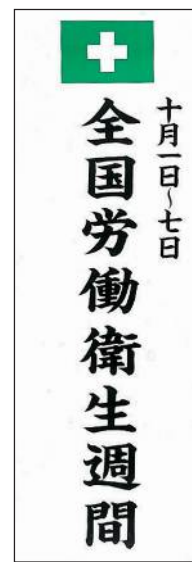 十月一日～七日
全国労働衛生週間